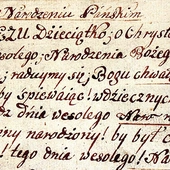 Narodzeniu Pańskim
EZU Dzieciątko, o Chryst
esołego, Narodzenia Bożeg
, radujmy się, Bogu chwał
by śpiewając! wdzięcznyc
z dnia wesołego
nny narodzony! by był c
! tego dnia wesołego! Na